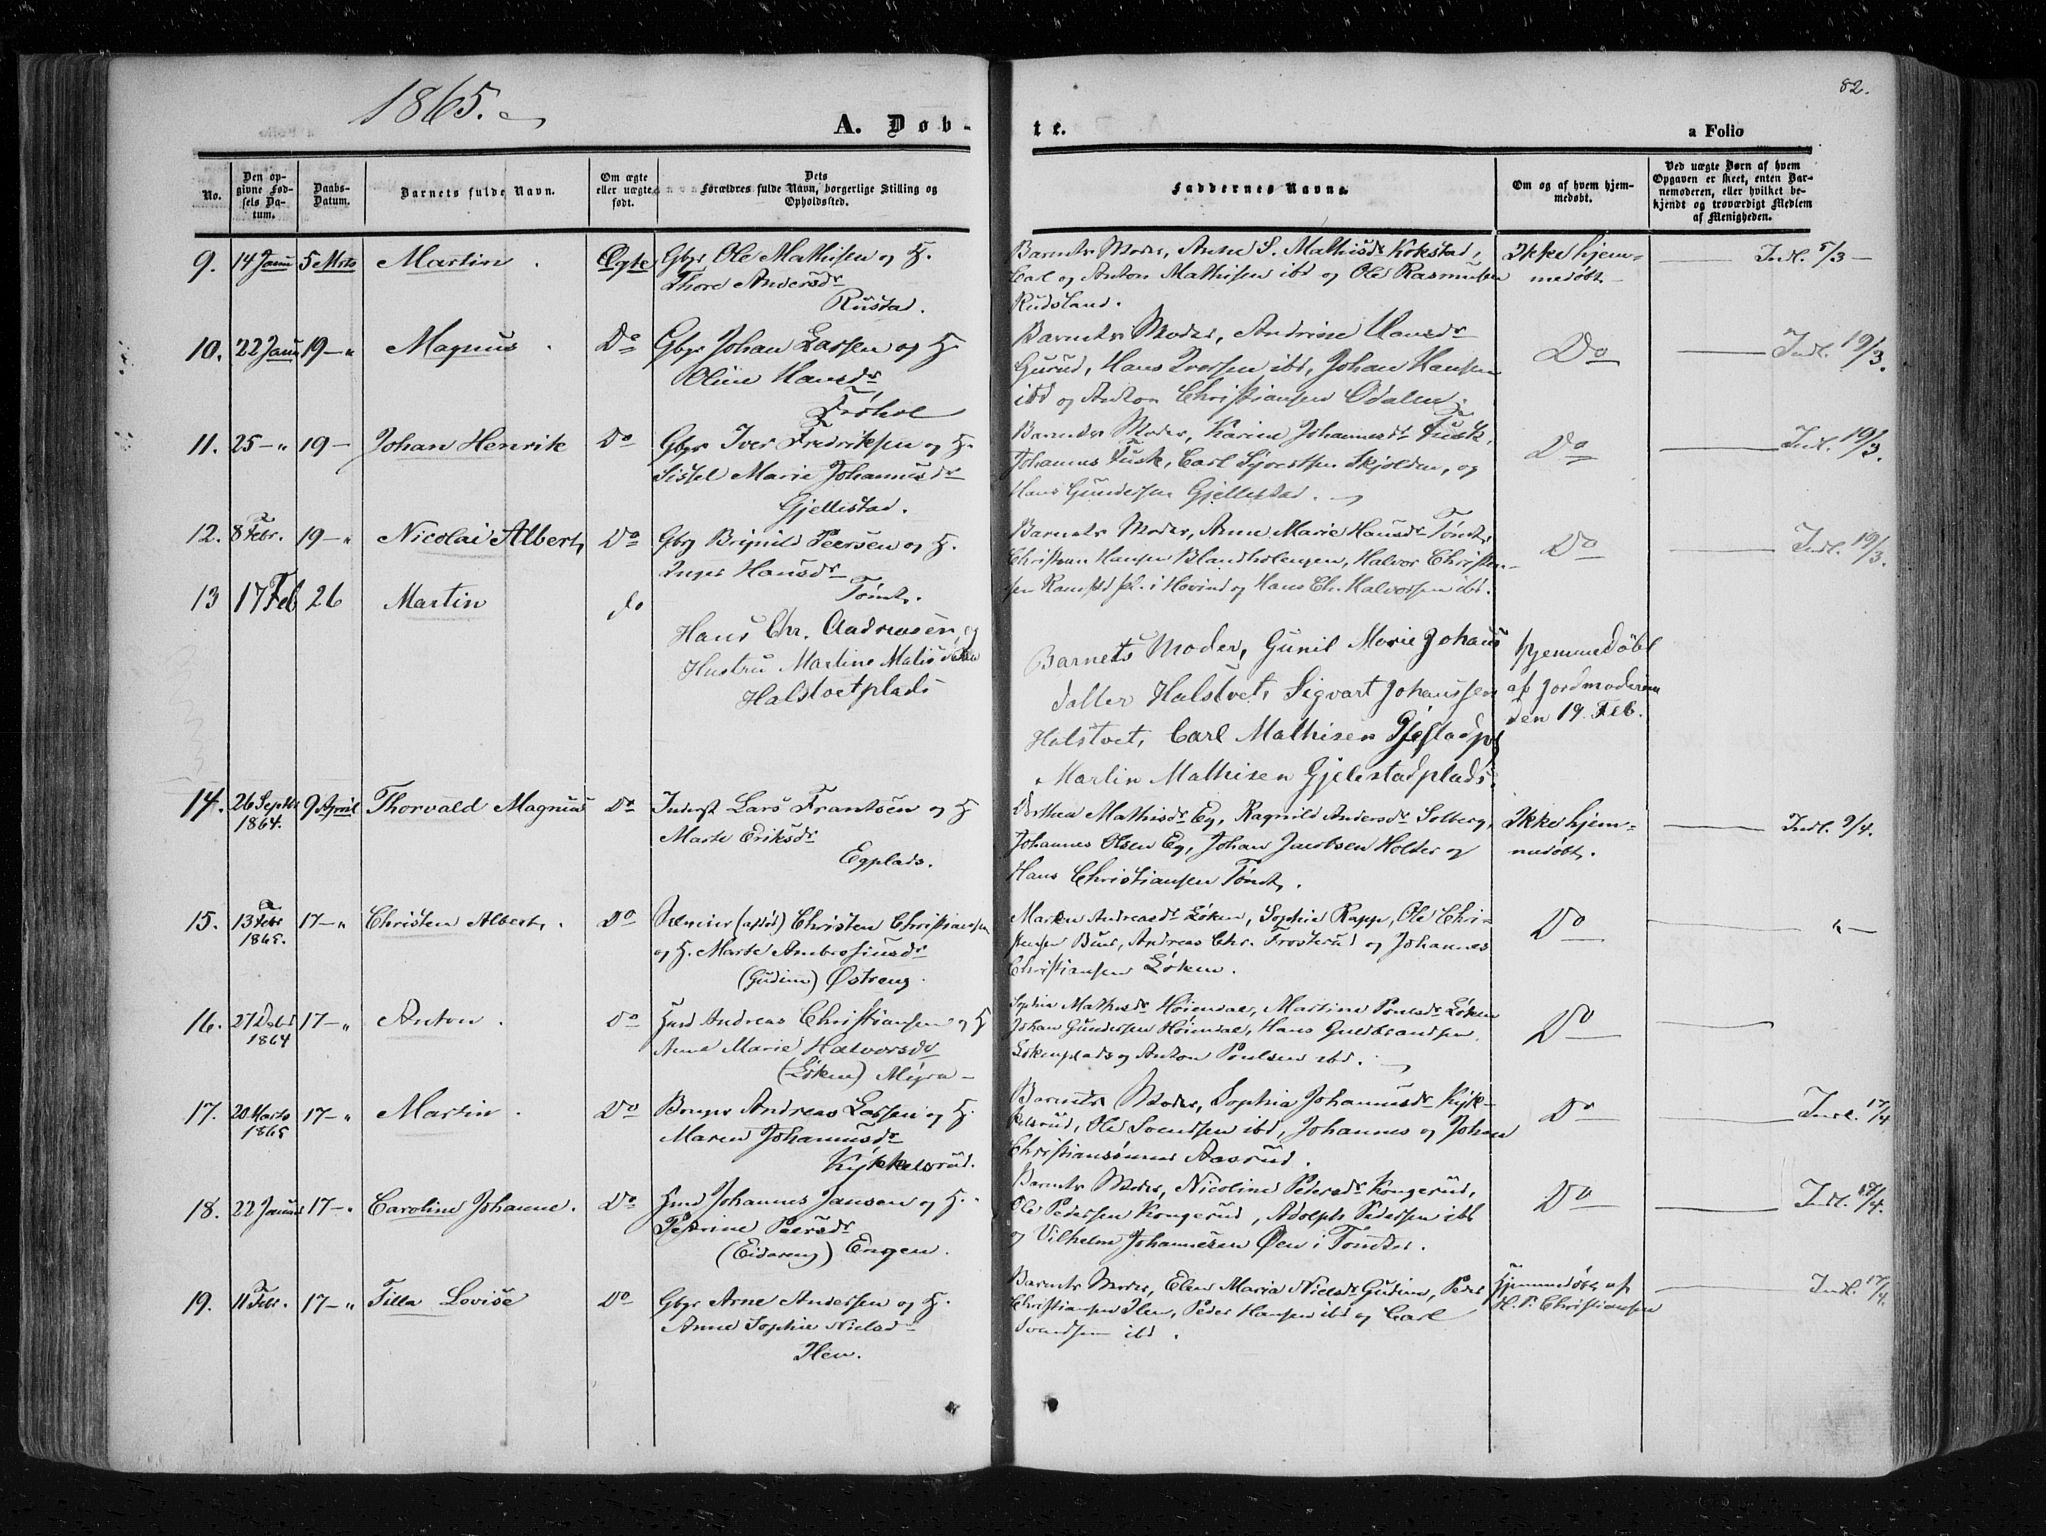 1865.
82.
A. Døb-
te.
a Folio
No.
Den op-
givne Fød-
sels Da-
tum.
Daabs-
Datum.
Barnets fulde Navn.
Om ægte
eller uægte
født.
Dets
Forældres fulde Navn, borgerlige Stilling og
Opholdssted.
Faddernes Navne.
Om og af hvem hjem-
medøbt.
Ved uægte Børn af hvem
Opgaven er skeet, enten Bar-
nemoderen, eller hvilket be-
kjendt og troværdigt Medlem
af Menigheden.
9. 14 Janu 5 Mrts Martin. Ægte Gbr Ole Mathisen og H.
Thore Andersdr
Rustad.
Barnets Moder, Anne S. Mathisdr Kokstad,
Carl og Anton Mathisen ibd og Ole Rasmusen
Rudsland.
Ikke hjem-
medøbt
Indl. 5/3
10. 22 Janu 19 - " Magnus. Do Gbr Johan Larsen og H.
Oline Hansdr
Frøhol
Barnets Moder, Andrine Hansdr
Gurud, Hans Iversen ibd, Johan Hansen
ibd og Anton Christiansen Odalen.
Do
Indl. 19/3.
11. 25 - " 19 - Johan Henrik Do Gbr Iver Fredriksen og H.
Sissel Marie Johannesdr
Gjellestad.
Barnets Moder, Karine Johannesdr Fusk,
Johannes Fusk, Carl Syvertsen Skjolden, og
Hans Gundersen Gjellestad.
Do
Indl. 19/3.
12. 8 Febr. 19 - " Nicolai Albert, Do Gbr Brynild Peersen og H.
Inger Hansdr
Tømt.
Barnets Moder, Anne Marie Hansdr Tømt,
Christian Hansen Blandholengen, Halvor Christen-
sen Ramstd pl. i Hovind og Hans Chr. Halvorsen ibd.
Do
Indl. 19/3.
13 17 Feb 26 Martin do
Hans Chr. Andreasen og
Hustru Martine Matisdatter
Halstvetplads
Barnets Moder, Gunil Marie Johans
datter Halstvet, Sigvart Johanssen
Halstvet, Carl Mathisen Gjelstadpl
Martin Mathisen Gjelestadplads.
hjemmedøbt
af Jordmoderen
den 19. Feb.
14. 26 Septbr 9 April Thorvald Magnus Do Inderst Lars Frantsen og H
1864.
Marte Eriksdr
Egplads.
Dorthea Mathisdr Eg, Ragnild Andersdr Solberg,
Johannes Olsen Eg, Johan Jacobsen Holter og
Hans Christiansen Tømt.
Ikke hjem-
medøbt.
Indl. 9/4.
15. 13 Febr 17 - " Christen Albert. Do (afdød) Christen Christiansen
1865.
og H. Marte Ambrosiusdr
(Gudim) Østreng.
Maren Andreasdr Løken, Sophie Rapp, Ole Chri-
stensen Buer, Andreas Chr. Frosterud og Johannes
Christiansen Løken.
Do
"
16. 27 Octbr 17 - " Anton. Do Husd Andreas Christiansen og H
1864
Anne Marie Halvorsdr
(Løken) Myra
Sophie Mathisdr Høiendal, Martine Poulsdr Løken
Johan Gundersen Høiendal, Hans Guldbrandsen
Løkenplads og Anton Poulsen ibd.
Do
17. 20 Marts 17 - " Martin. Do Bonges Andreas Larsen og H.
1865
Maren Johannesdr
Kykkelsrud.
Barnets Moder, Sophia Johannesdr Kyk-
kelsrud, Ole Svendsen ibd, Johannes og Johan
Christiansønner Aasrud.
Do
Indl. 17/4
18. 22 Janua 17 - " Caroline Johanne. Do Husd Johannes Jansen og H.
Petrine Peersdr
(Eidareng) Engen.
Barnets Moder, Nicoline Pedersdr Kongerud,
Ole Pedersen Kongerud, Adolph Pedersen ibd
og Vilhelm Johannesen Øen i Tomter.
Do
Indl. 17/4.
19. 11 Febr. 17 - " Tilla Lovise Do Gbr Arne Andersen og H.
Anne Sophie Nielsdr
Hen.
Barnets Moder, Elen Maria Nielsdr Gudim, Peder
Christiansen Hen, Peder Hansen ibd og Carl
Svendsen ibd.
Hjemmedøbt af
H. P. Christiansen
Indl. 17/4.